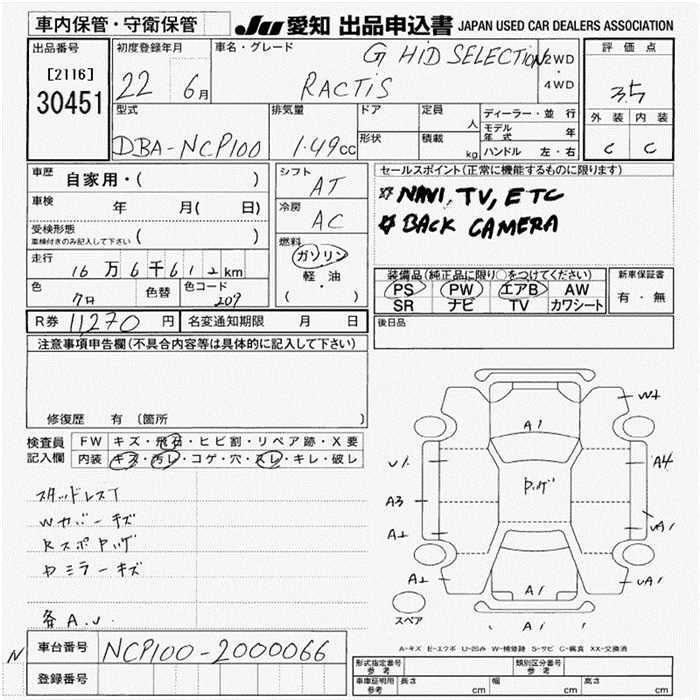 車内保管・守衛保管
JU 愛知 出品申込書 JAPAN USED CAR DEALERS ASSOCIATION
出品番号
[2116]
30451
初度登録年月
22 6月
車名・グレード
G HID SELECTION
RACTIS
2WD
4WD
評価点
3.5
外装 内装
C C
型式
DBA-NCP100
排気量
1.49cc
ドア
形状
定員 人
積載 kg
ディーラー・並行
モデル年式 年
ハンドル 左・右
車歴 自家用・( )
車検 年 月( 日)
受検形態
車検付きのみ記入して下さい ( )
走行 16万6千612km
色 クロ 色替
色コード 209
シフト AT
冷房 AC
燃料
ガソリン
軽・油
( )
セールスポイント(正常に機能するものに限ります)
☆ NAVI, TV, ETC
☆ BACK CAMERA
装備品(純正品に限り○をつけてください)
PS PW エアB AW
SR ナビ TV カワシート
新車保証書
有・無
R券 11270 円 名変通知期限 月 日
後日品
注意事項申告欄(不具合内容等は具体的に記入して下さい)
修復歴 有 〔箇所 〕
検査員
記入欄
FW キズ・飛石・ヒビ割・リペア跡・X要
内装 キズ・汚レ・コゲ・穴・スレ・キレ・破レ
スタッドレスT
Wカバーキズ
Rスポハゲ
Dミラーキズ
各A.U.
A1
W2
U1
A4
ハゲ
A3
A2
UA1
A2
A1
UA1
スペア
A1
A-キズ E-エクボ U-凹み W-補修跡 S-サビ C-腐食 XX-交換済
N
車台番号 NCP100-2000066
登録番号
形式指定番号
参考
類別区分番号
参考
車庫証明用
参考
長さ cm 幅 cm 高さ cm